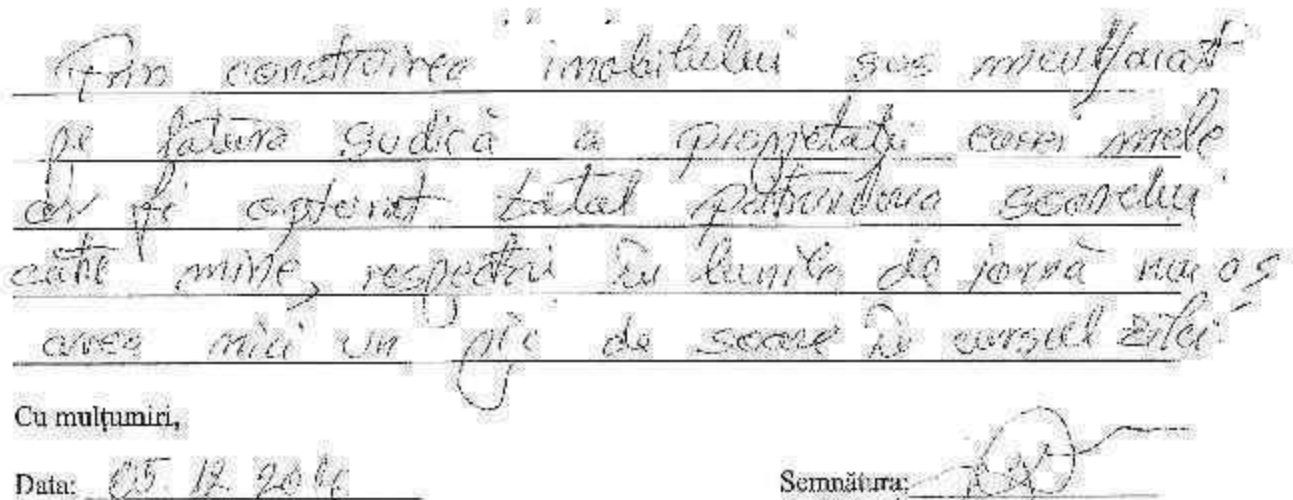 Prin construirea imobilului sus menționat
pe latura sudică a proprietății casei mele
ar fi obturat total pătrunderea soarelui
către mine, respectiv în lunile de iarnă nu aș
avea nici un pic de soare în cursul zilei.
Cu mulțumiri,
Data: 05. 12. 20
Semnătura: